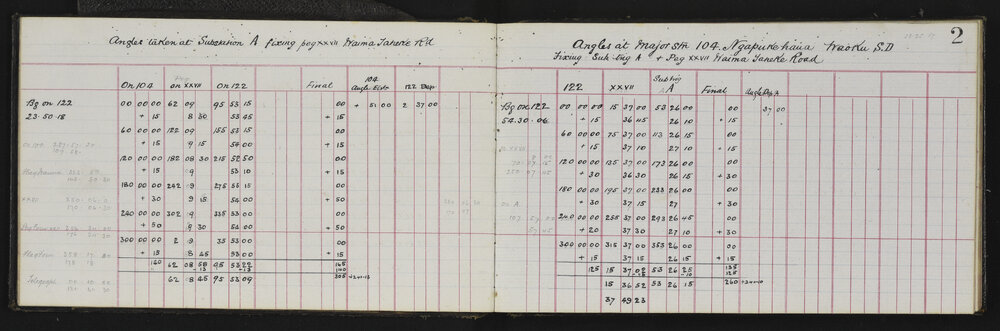 2
Angles taken at Substation A fixing peg XXVII Waima Taneke Rd
On 104 Peg on XXVII On 122 Final 104 Angle Elvtn 122 Dep
Bg on 122 00 00 00 62 09 95 53 15 00 + 51 00 2 37 00
23·50·18 + 15 8 30 53 45 + 15
60 00 00 122 09 155 53 15 00
+ 15 9 15 54 00 + 15
120 00 00 182 08 30 215 52 50 00
+ 15 9 53 10 + 15
180 00 00 242 9 275 53 15 00
+ 30 9 15 54 00 + 50
XXVII
240 00 00 302 9 335 53 00 00
+ 50 9 30 54 00 + 50
300 00 00 2 9 35 53 00 00
+ 15 8 45 53 00 + 15
160 62 08 58 95 53 22 165
-13 -13
62 8 45 95 53 09 305
Telegraph
Angles at Major Stn 104 Ngapuke haua Waoku S.D
Fixing Sub trig A + Peg XXVII Waima Taneke Road
122 XXVII Subtrig A Final Angle Dep A
Bg on 122 00 00 00 15 37 00 53 26 00 00 37 00
54·30·06 + 15 36 45 26 10 + 15
60 00 00 75 37 00 113 26 15 00
+ 15 37 10 27 10 + 15
120 00 00 135 37 00 173 26 00 00
+ 30 36 30 26 15 + 30
180 00 00 195 37 00 233 26 00 00
+ 30 37 15 27 + 30
240 00 00 255 37 00 293 26 45 00
+ 20 37 30 27 10 + 30
300 00 00 315 37 00 353 26 00 00
+ 15 37 15 26 15 + 15
125 15 37 02 53 26 25 135
-10 125
15 36 52 53 26 15 260
37 49 23